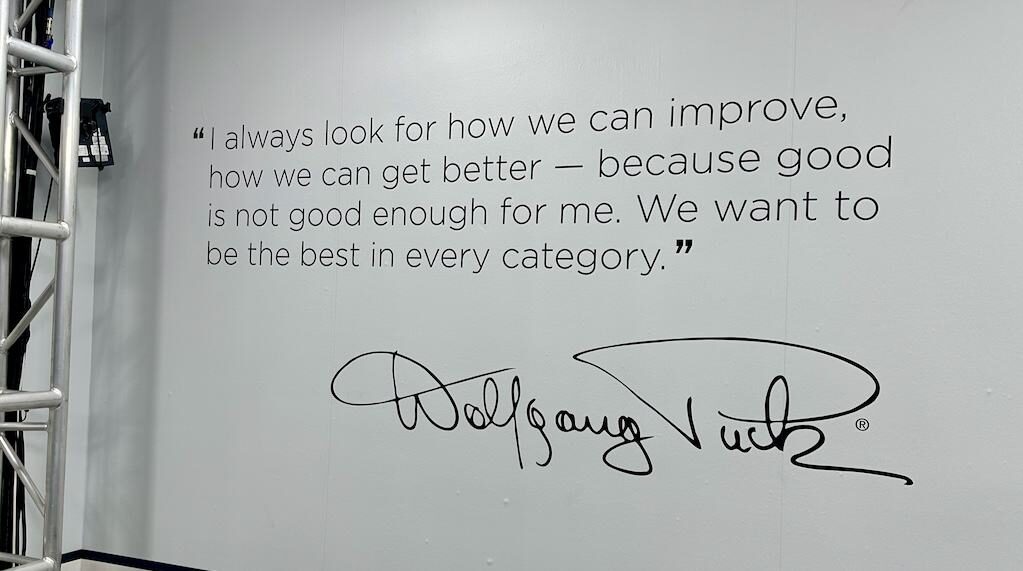 “I always look for how we can improve,
how we can get better — because good
is not good enough for me. We want to
be the best in every category.”
Wolfgang Puck®